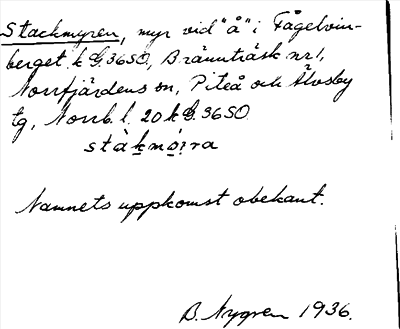 Stackmyren, myr vid "å" i Fågelvin-
berget k G.36SO, Brännträsk nr 1,
Norrfjärdens sn, Piteå och Älvsby
tg, Norrb. l. 20 k G.36SO
stàkmo̤i̤ra
Namnets uppkomst obekant.
B. Nygren 1936.